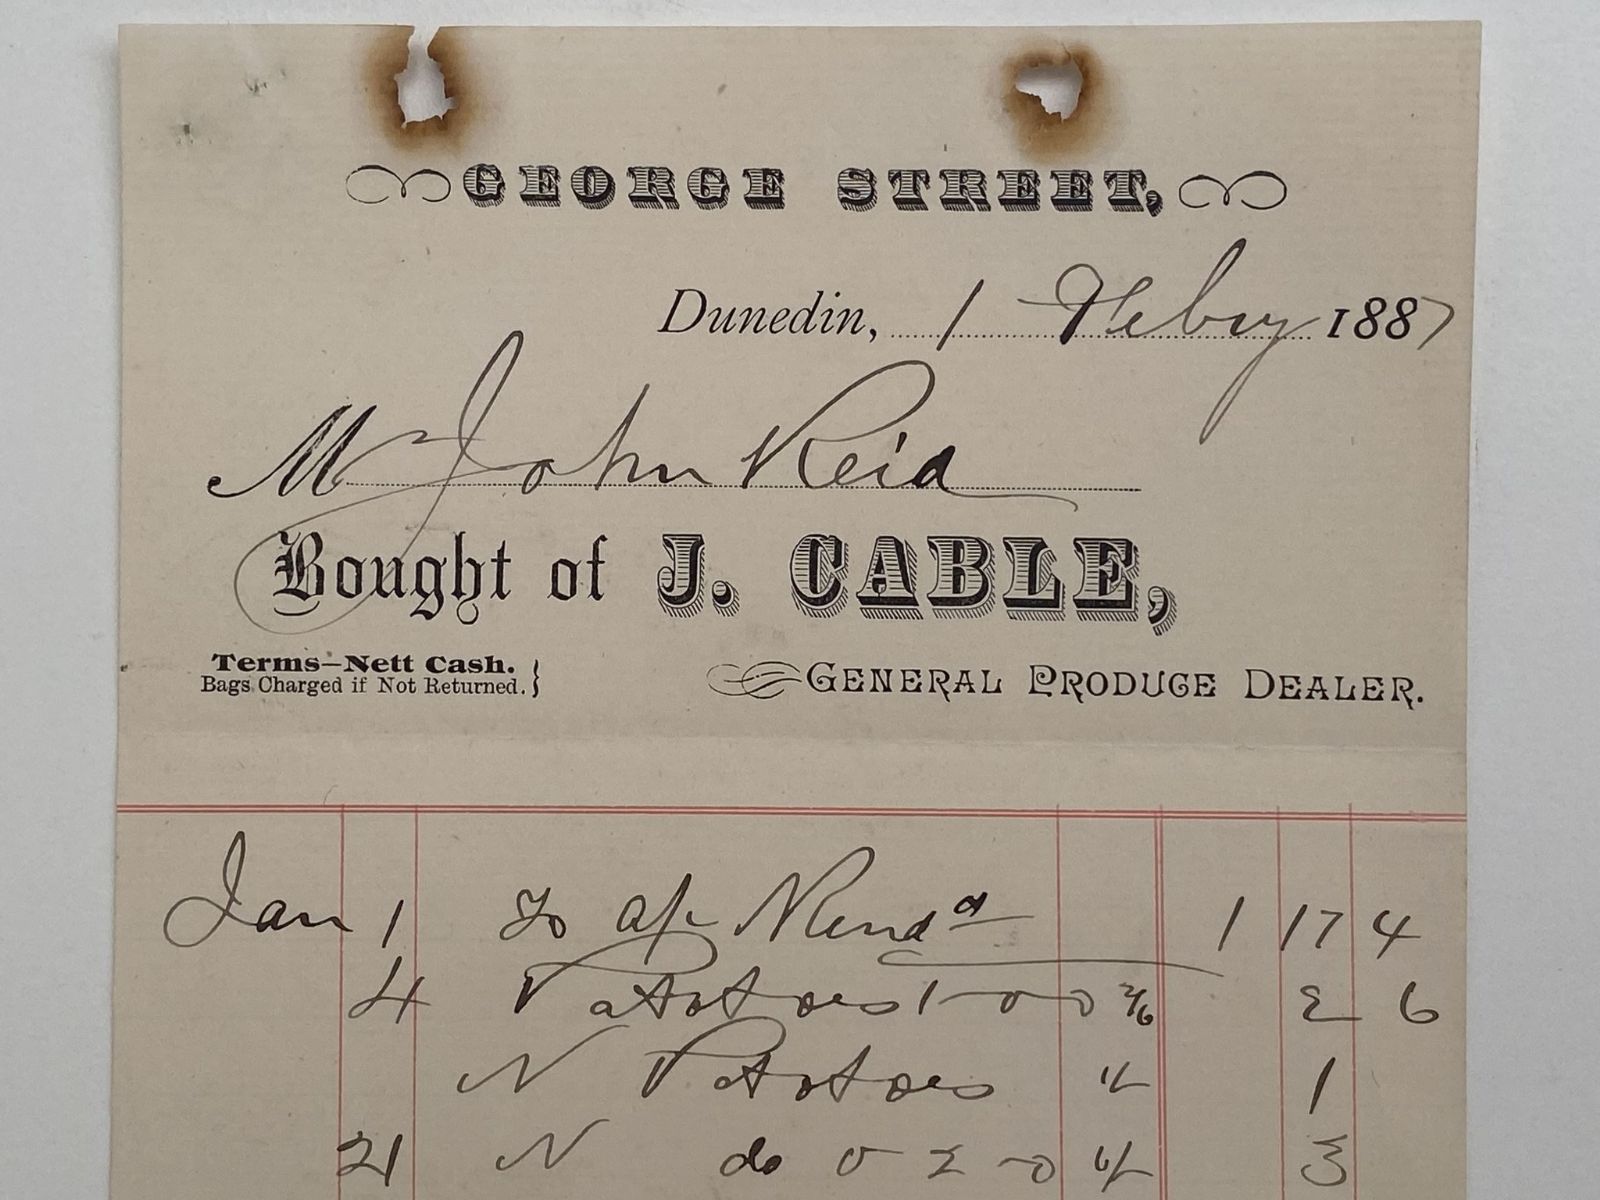 GEORGE STREET,
Dunedin, 1 Febry 1887
Mr John Reid
Bought of J. CABLE,
Terms—Nett Cash.
Bags Charged if Not Returned.
GENERAL PRODUCE DEALER.
Jan 1 To a/c Rendd 1 17 4
4 Potatoes 1-0-0 2/6 2 6
N Potatoes 1
21 N do 0 2-0 3